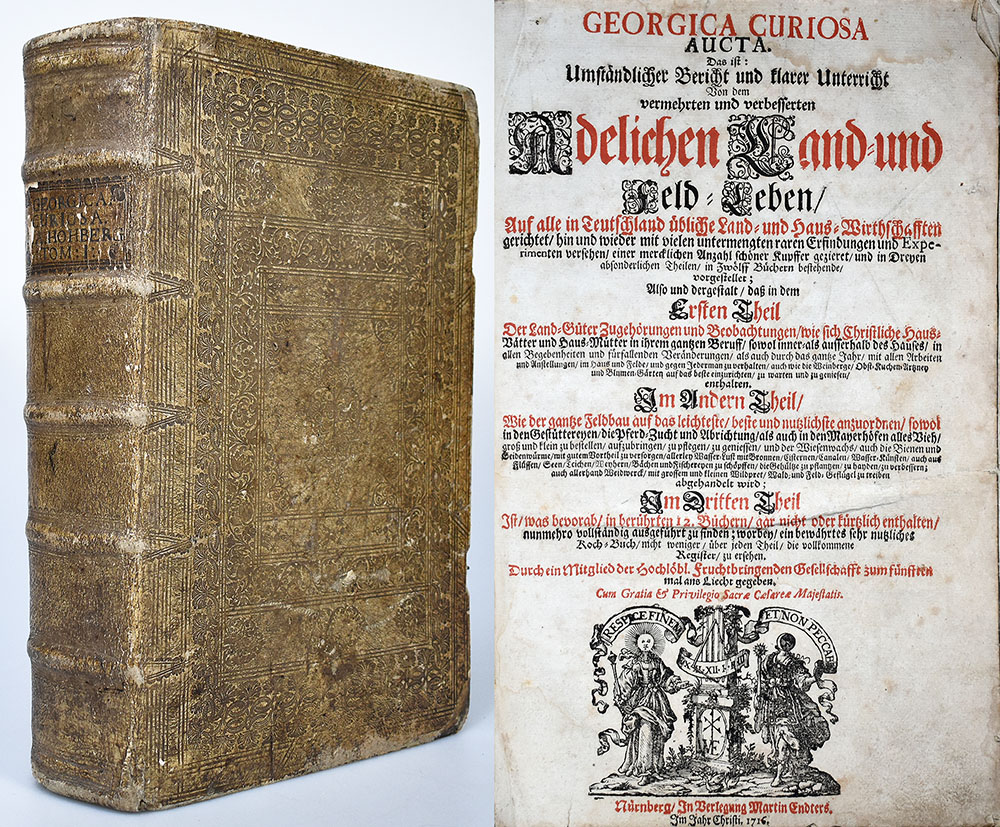 GEORGICA
CURIOSA
HOHBERG
TOM: I.
GEORGICA CURIOSA
AUCTA.
Das ist:
Umständlicher Bericht und klarer Unterricht
Von dem
vermehrten und verbesserten
Adelichen Land- und
Feld-Leben/
Auf alle in Teutschland übliche Land- und Haus-Wirthschafften
gerichtet/ hin und wieder mit vielen untermengten raren Erfindungen und Expe-
rimenten versehen/ einer mercklichen Anzahl schöner Kupffer gezieret/ und in Dreyen
absonderlichen Theilen/ in Zwölff Büchern bestehende/
vorgestellet;
Also und dergestalt/ daß in dem
Ersten Theil
Der Land-Güter Zugehörungen und Beobachtungen/ wie sich Christliche Haus-
Vätter und Haus-Mütter in ihrem gantzen Beruff/ sowol inner- als ausserhalb des Hauses/ in
allen Begebenheiten und fürfallenden Veränderungen/ als auch durch das gantze Jahr/ mit allen Arbeiten
und Anstellungen/ im Haus und Felde/ und gegen Jederman zu verhalten/ auch wie die Weinberge/ Obst-Kuchen-Artzney
und Blumen-Gärten auf das beste einzurichten/ zu warten und zu geniesen/
enthalten.
Im Andern Theil/
Wie der gantze Feldbau auf das leichteste/ beste und nutzlichste anzuordnen/ sowol
in den Gestüttereyen/ die Pferd-Zucht und Abrichtung/ als auch in den Mayerhöfen alles Vieh/
groß und klein zu bestellen/ aufzubringen/ zu pflegen/ zu geniessen/ und der Wiesenwachs/ auch die Bienen und
Seidenwürme/ mit gutem Vortheil zu versorgen/ allerley Wasser-Lust mit Bronnen/ Cisternen/ Canalen/ Wasser-Künsten/ auch aus
Flüssen/ Seen/ Teichen/ Weyhern/ Bächen und Fischereyen zu schöpffen/ die Gehültze zu pflantzen/ zu hayden/ zu verbessern;
auch allerhand Weidwerck/ mit grossem und kleinen Wildpret/ Wald- und Feld-Geflügel zu treiben
abgehandelt wird;
Im Dritten Theil
Ist/ was bevorab/ in berührten 12. Büchern/ gar nicht oder kürtzlich enthalten/
nunmehro vollständig ausgeführt zu finden; worbey/ ein bewährtes sehr nutzliches
Koch-Buch/ nicht weniger/ über jeden Theil/ die vollkommene
Register/ zu ersehen.
Durch ein Mitglied der Hochlöbl. Fruchtbringenden Gesellschafft zum fünfften
mal ans Liecht gegeben.
Cum Gratia & Privilegio Sacræ Cæsareæ Majestatis.
RESPICE FINEM
ET NON PECCAB
ME
Nürnberg/ In Verlegung Martin Endters.
Im Jahr Christi. 1716.